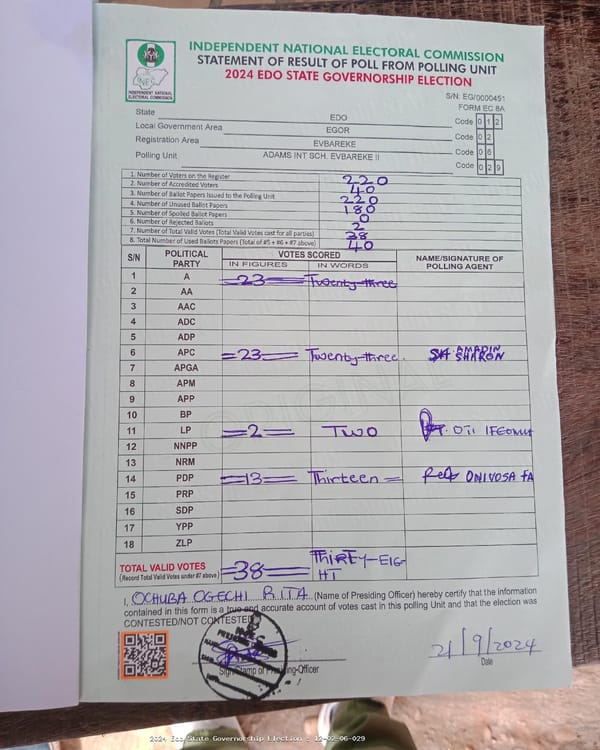 INDEPENDENT NATIONAL ELECTORAL COMMISSION
STATEMENT OF RESULT OF POLL FROM POLLING UNIT
2024 EDO STATE GOVERNORSHIP ELECTION
INDEPENDENT NATIONAL
ELECTORAL COMMISSION
S/N: EG/0000451
FORM EC 8A
State EDO Code 0 1 2
Local Government Area EGOR Code 0 2
Registration Area EVBAREKE Code 0 6
Polling Unit ADAMS INT SCH. EVBAREKE II Code 0 2 9
1. Number of Voters on the Register 220
2. Number of Accredited Voters 40
3. Number of Ballot Papers Issued to the Polling Unit 220
4. Number of Unused Ballot Papers 180
5. Number of Spoiled Ballot Papers 0
6. Number of Rejected Ballots 2
7. Number of Total Valid Votes (Total Valid Votes cast for all parties) 38
8. Total Number of Used Ballots Papers (Total of #5 + #6 + #7 above) 40
S/N POLITICAL PARTY VOTES SCORED NAME/SIGNATURE OF POLLING AGENT
IN FIGURES IN WORDS
1 A 23 Twenty-three
2 AA
3 AAC
4 ADC
5 ADP
6 APC =23= Twenty-three. AMADIN SHARON
7 APGA
8 APM
9 APP
10 BP
11 LP =2= TWO OTI IFEOMA
12 NNPP
13 NRM
14 PDP =13= Thirteen = ONIVOSA FA
15 PRP
16 SDP
17 YPP
18 ZLP
TOTAL VALID VOTES =38= THIRTY-EIG-
(Record Total Valid Votes under #7 above) HT
I, OCHUBA OGECHI RITA (Name of Presiding Officer) hereby certify that the information
contained in this form is a true and accurate account of votes cast in this polling Unit and that the election was
CONTESTED/NOT CONTESTED
21/9/2024
Sign/Stamp of Presiding-Officer Date
ORIGINAL
2024 Edo State Governorship Election - 12-02-06-029